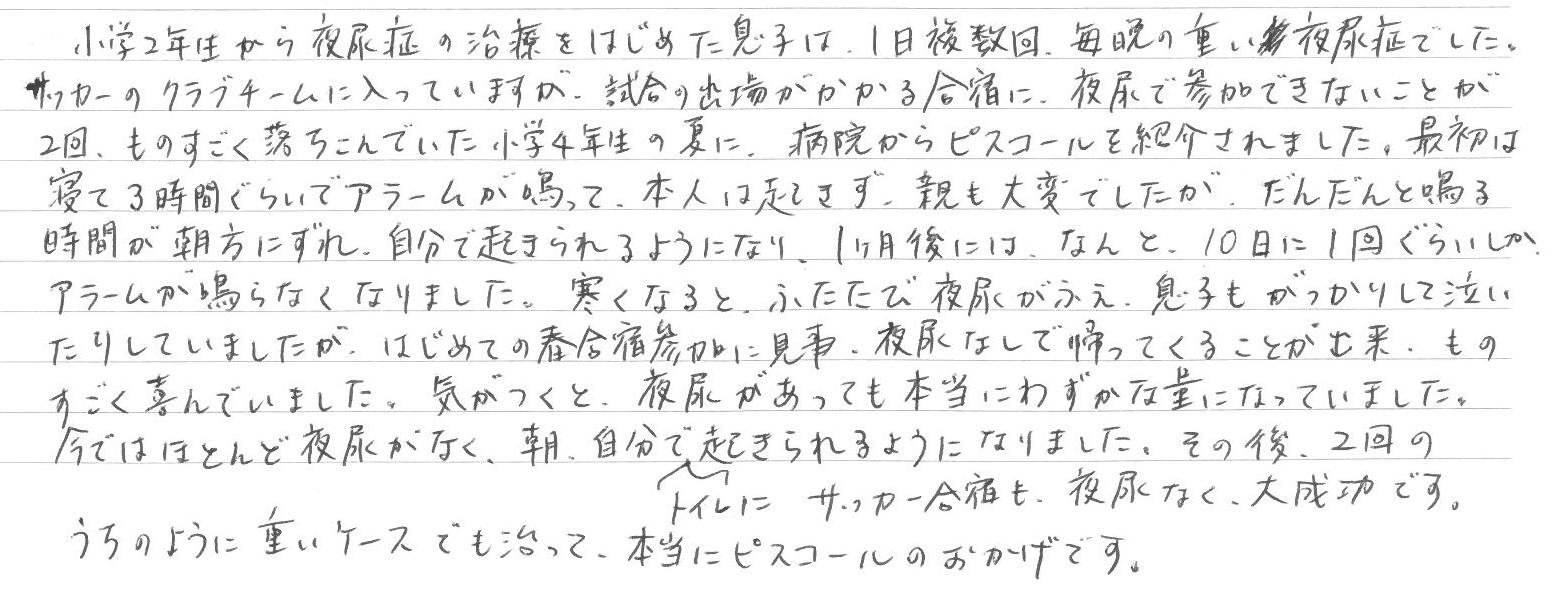 小学2年生から夜尿症の治療をはじめた息子は、1日複数回、毎晩の重い夜尿症でした。
サッカーのクラブチームに入っていますが、試合の出場がかかる合宿に、夜尿で参加できないことが
2回、ものすごく落ちこんでいた小学4年生の夏に、病院からピスコールを紹介されました。最初は
寝て3時間ぐらいでアラームが鳴って、本人は起きず、親も大変でしたが、だんだんと鳴る
時間が朝方にずれ、自分で起きられるようになり、1ヶ月後には、なんと、10日に1回ぐらいしか、
アラームが鳴らなくなりました。寒くなると、ふたたび夜尿がふえ、息子もがっかりして泣い
たりしていましたが、はじめての春合宿参加に見事、夜尿なしで帰ってくることが出来、もの
すごく喜んでいました。気がつくと、夜尿があっても本当にわずかな量になっていました。
今ではほとんど夜尿がなく、朝、自分で起きられるようになりました。その後、2回の
トイレに サッカー合宿も、夜尿なく、大成功です。
うちのように重いケースでも治って、本当にピスコールのおかげです。